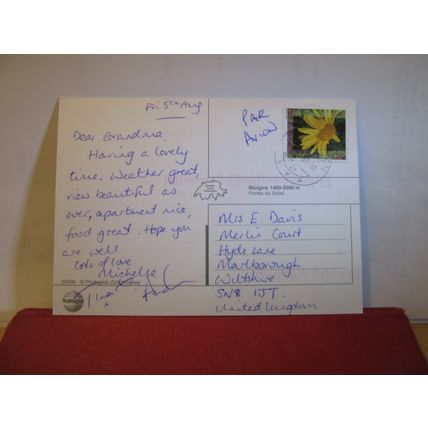 Fri 5th Aug
Dear Grandma
Having a lovely
time. Weather great,
view beautiful as
ever, apartment nice,
food great. Hope you
are well
Lots of love
Michelle
PAR
AVION
Morgins 1400-2000 m
Portes du Soleil
Mrs E. Davis
Merlin Court
Hyde Lane
Marlborough
Wiltshire
SN8 1JT.
United Kingdom